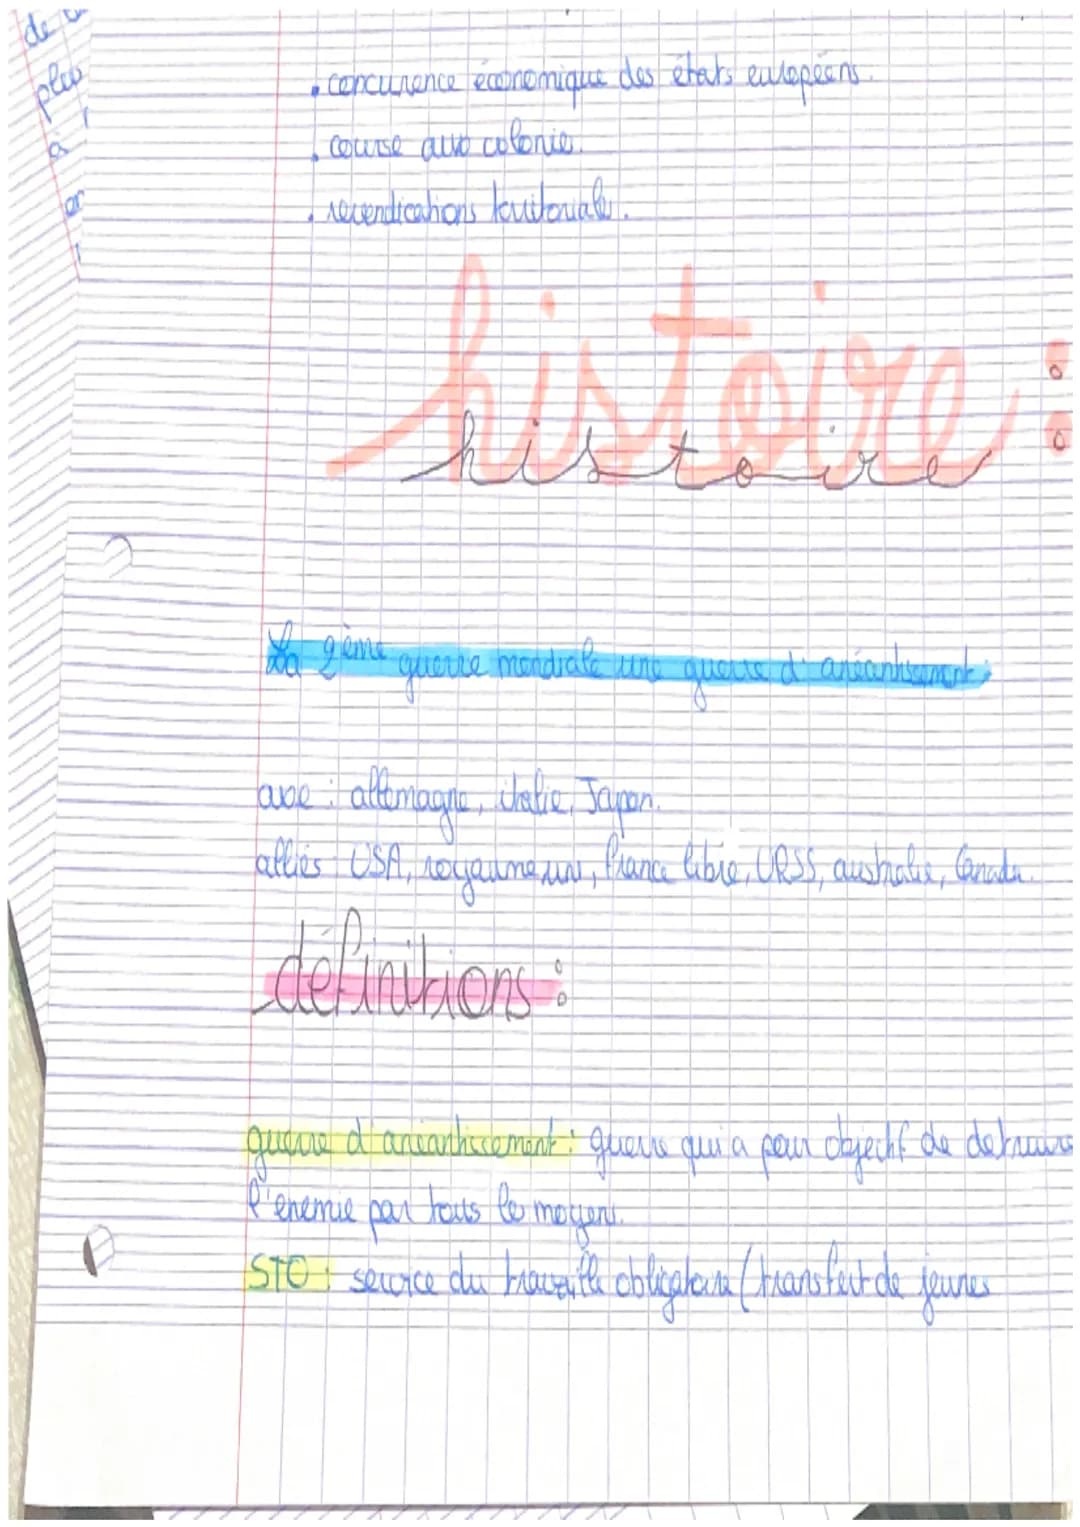 de
plus
à
. concurence économique des états européens.
. course aux colonie.
. revendications territoriale.
histoire :
histoire :
La 2ème guerre mondiale une guerre d'anéantissement :
axe : allemagne, italie, Japon.
alliés : USA, royaume uni, france libre, URSS, australie, Canada.
définitions :
guerre d'anéantissement : guerre qui a pour objectif de detruire
l'enemie par tous les moyens.
STO : service du travaille obligatoire (transfert de jeunes